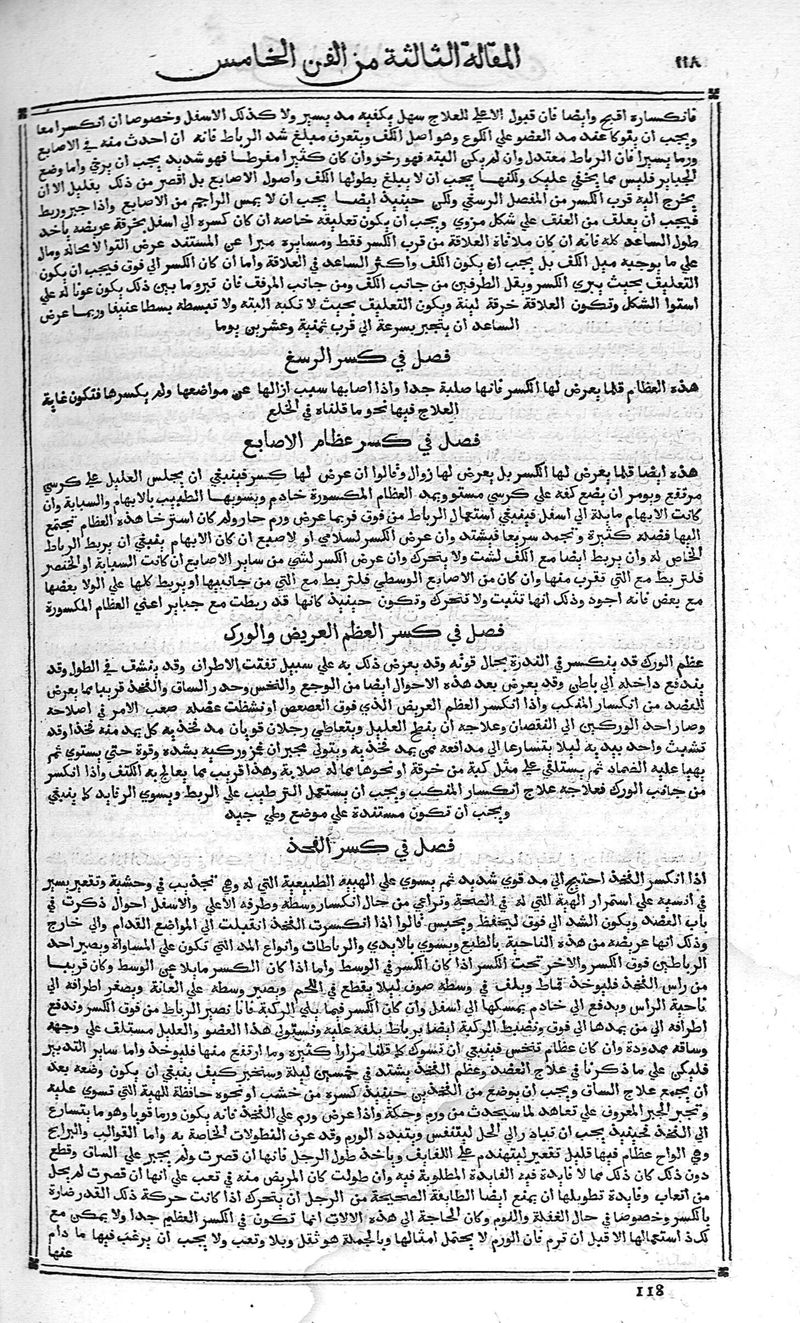 ١١٨
المقالة الثالثة من الفن الخامس
فانكساره اقبح وايضا فان قبول الاعلي للعلاج سهل يكفيه مد يسير ولا كذلك الاسفل وخصوصا ان انكسرا معا
ويجب ان يقوكا عند مد العضو علي الكوع وهو اصل الكف ويتعرف مبلغ شد الرباط فانه ان احدث منه في الاصابع
ورما يسيرا فان الرباط معتدل وان لم يكن البته فهو رخو وان كان كثيرا مفرطا فهو شديد يجب ان يرخي واما وضع
الجباير فليس مما يخفي عليك ولكنها يجب ان لا يبلغ بطولها الكف واصول الاصابع بل اقصر من ذلك بقليل الا ان
يحرج اليه قرب الكسر من المفصل الرسغي ولكن حينيذ ايضا يجب ان لا يمس الراجم من الاصابع واذا جبر وربط
فيجب ان يعلف من العنف علي شكل مزوي ويجب ان يكون تعليقه خاصه ان كان كسره الي اسفل بخرقة عريضه ياخذ
طول الساعد كله فانه ان كان ملاقاة العلاقة من قرب الكسر فقط وسايره مبرا عن المستند عرض التوا لا محاله ومال
علي ما يوجبه ميل الكف بل يجب ان يكون الكف واكثر الساعد في العلاقة واما ان كان الكسر الي فوق فيجب ان يكون
التعليف بحيث يبري الكسر ويقل الطرفين من جانب الكف ومن جانب المرفف فان تبرو ما بين ذلك يكون عونا له علي
استوا الشكل وتكون العلاقة خرقة لينة ويكون التعليف بحيث لا تكبه البته ولا تبسطه بسطا عنيفا وربما عرض
الساعد ان يتجبر بسرعة الي قرب ثمنية وعشرين يوما
فصل في كسر الرسغ
هذه العظام قلما يعرض لها الكسر فانها صلبة جدا واذا اصابها سبب ازالها عن مواضعها ولم يكسرها فتكون غاية
العلاج فيها نحو ما قلناه في الخلع
فصل في كسر عظام الاصابع
هذه ايضا قلما يعرض لها الكسر بل يعرض لها زوال وقالوا ان عرض لها كسر فينبغي ان يجلس العليل علي كرسي
مرتفع ويومر ان يضع كفه علي كرسي مستو ويمد العظام المكسورة خادم ويسويها الطبيب بالابهام والسبابة وان
كانت الابهام مايلة الي اسفل فينبغي استعمال الرباط من فوق فربما عرض ورم حار ولم كان استرخا هذه العظام تجتمع
اليها فضله كثيرة وتجمد سريعا فيشتد وان عرض الكسر لسلامي او لاصبع ان كان الابهام ينبغي ان يربط الرباط
الخاص له وان يربط ايضا مع الكف لتثبت ولا يتحرك وان عرض الكسر لشي من ساير الاصابع ان كانت السبابة او الخنصر
فلتربط مع التي تقرب منها وان كان من الاصابع الوسطي فلتربط مع التي من جانبيها او يربط كلها علي الولا بعضها
مع بعض فانه اجود وذلك انها تثبت ولا تتحرك وتكون حينيذ كانها قد ربطت مع جباير اعني العظام المكسورة
فصل في كسر العظم العريض والورك
عظم الورك قد ينكسر في الندرة بحال قوته وقد يعرض ذلك به علي سبيل تفتت الاطراف وقد ينشف في الطول وقد
يندفع داخله الي باطن وقد يعرض بعد هذه الاحوال ايضا من الوجع والنخس وخدر الساق والفخذ قريبا مما يعرض
للعضد من انكسار المنكب واذا انكسر العظم العريض الذي فوق العصعص او تشظت عضله صعب الامر في اصلاحه
وصار احد الوركين الي النقصان وعلاجه ان يبطح العليل ويتعاطي رجلان قويان مد فخذيه كل يمد منه فخذا وقد
تشبث واحد بيديه ليلا يتسارعا الي مدافعه ممن يمد فخذيه ويتولي مجبران غمز وركيه بشده وقوة حتي يستوي ثم
يهيا عليه الضماد ثم يستلقي علي مثل كبة من خرقة او نحوها مما له صلابة وهذا قريب مما يعالج به الكتف واذا انكسر
من جانب الورك فعلاجه علاج انكسار المنكب ويجب ان يستعمل الترطيب علي الربط ويسوي الرفايد كما ينبغي
ويجب ان تكون مستندة علي موضع وطي جيد
فصل في كسر الفخذ
اذا انكسر الفخذ احتيج الي مد قوي شديد ثم يسوي علي الهيئة الطبيعية التي له وهي تحذيب في وحشية وتقعير يسير
في انسيه علي استمرار الهية التي له في الصحة وتراعي من حال انكسار وسطه وطرفه الاعلي والاسفل احوال ذكرت في
باب العضد ويكون الشد الي فوق ليتحفظ ويحبس قالوا اذا انكسرت الفخذ انقبلت الي المواضع القدام والي خارج
وذلك انها عريضه من هذه الناحية بالطبع ويسوي بالايدي والرباطات وانواع المد التي تكون علي المساواة ويصير احد
الرباطين فوق الكسر والاخر تحت الكسر اذا كان الكسر في الوسط واما اذا كان الكسر مايلا عن الوسط وكان قريبا
من راس الفخذ فليوخذ قماط ويلف في وسطه صوف ليلا يقطع في اللحم ويصير وسطه علي العانة ويصعر اطرافه الي
ناحية الراس ويدفع الي خادم يمسكها الي اسفل وان كان الكسر فيما يلي الركبة فانا نصير الرباط من فوق الكسر وندفع
اطرافه الي من يمدها الي فوق ونضبط الركبة ايضا برباط يلفه عليه ونستولي هذا العضو والعليل مستلف علي وجهه
وساقه ممدودة وان كان عظام تنخس فينبغي ان تسوي كما قلنا مرارا كثيره وما ارتفع منها فليوخذ واما ساير التدبير
فليكن علي ما ذكرنا في علاج العضد وعظم الفخذ يشتد في خمسين ليلة وسنخبر كيف ينبغي ان يكون وضعه بعد
ان يجمع علاج الساق ويجب ان يوضع من الفخذين حينيذ كسره من خشب او نحوه حافظة للهية التي تسوي عليه
وتجبر الجبر المعروف علي تعاهد لما سيحدث من ورم وحكة واذا عرض ورم علي الفخذ فانه يكون ورما قويا وهو ما يتسارع
الي الفخذ فحينيذ يجب ان تبادر الي الحل ليتنفس ويتبدد الورم وقد عرف النطولات الخاصة به واما القوالب والبرابخ
وهي الواح عظام فيها قليل تقعير ليتهندم علي اللفايف وياخذ طول الرجل فانها ان قصرت ولم يجبر علي الساق وقطع
دون ذلك كان ذلك مما لا فايدة فيه الفايدة المطلوبة فيه وان طولت كان المريض منه في تعب علي انها ان قصرت لم يخل
من اتعاب وفايدة تطويلها ان يمنع ايضا الطايفة الصحيحة من الرجل ان يتحرك اذا كانت حركة ذلك القدر ضارة
بالكسر وخصوصا في حال الغفلة والنوم وكان الحاجة الي هذه الالات انما تكون في الكسر العظيم جدا ولا يمكن مع
كدذ استعمالها الا قبل ان ترم فان الورم لا يحتمل امثالها وبالجملة هو ثقل وبلا وتعب ولا يجب ان يرغب فيها ما دام
عنها
118